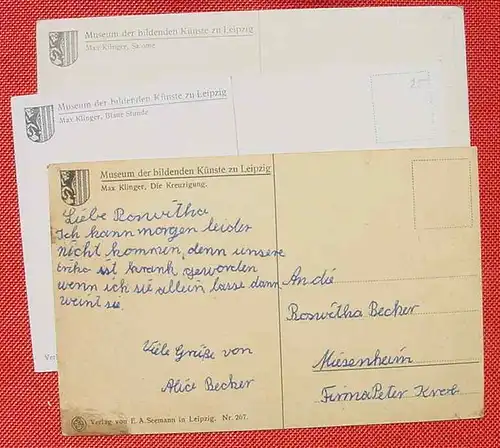 Museum der bildenden Künste zu Leipzig
Max Klinger, Salome
Museum der bildenden Künste zu Leipzig
Max Klinger, Blaue Stunde
Museum der bildenden Künste zu Leipzig
Max Klinger, Die Kreuzigung.
Liebe Roswitha
Ich kann morgen leider
nicht kommen, denn unsere
ist krank geworden
wenn ich sie allein lasse dann
weint sie.
Viele Grüße von
Alice Becker
An die
Roswitha Becker
Miesenheim
Firma Peter
Verlag von E. A. Seemann in Leipzig. Nr. 267.